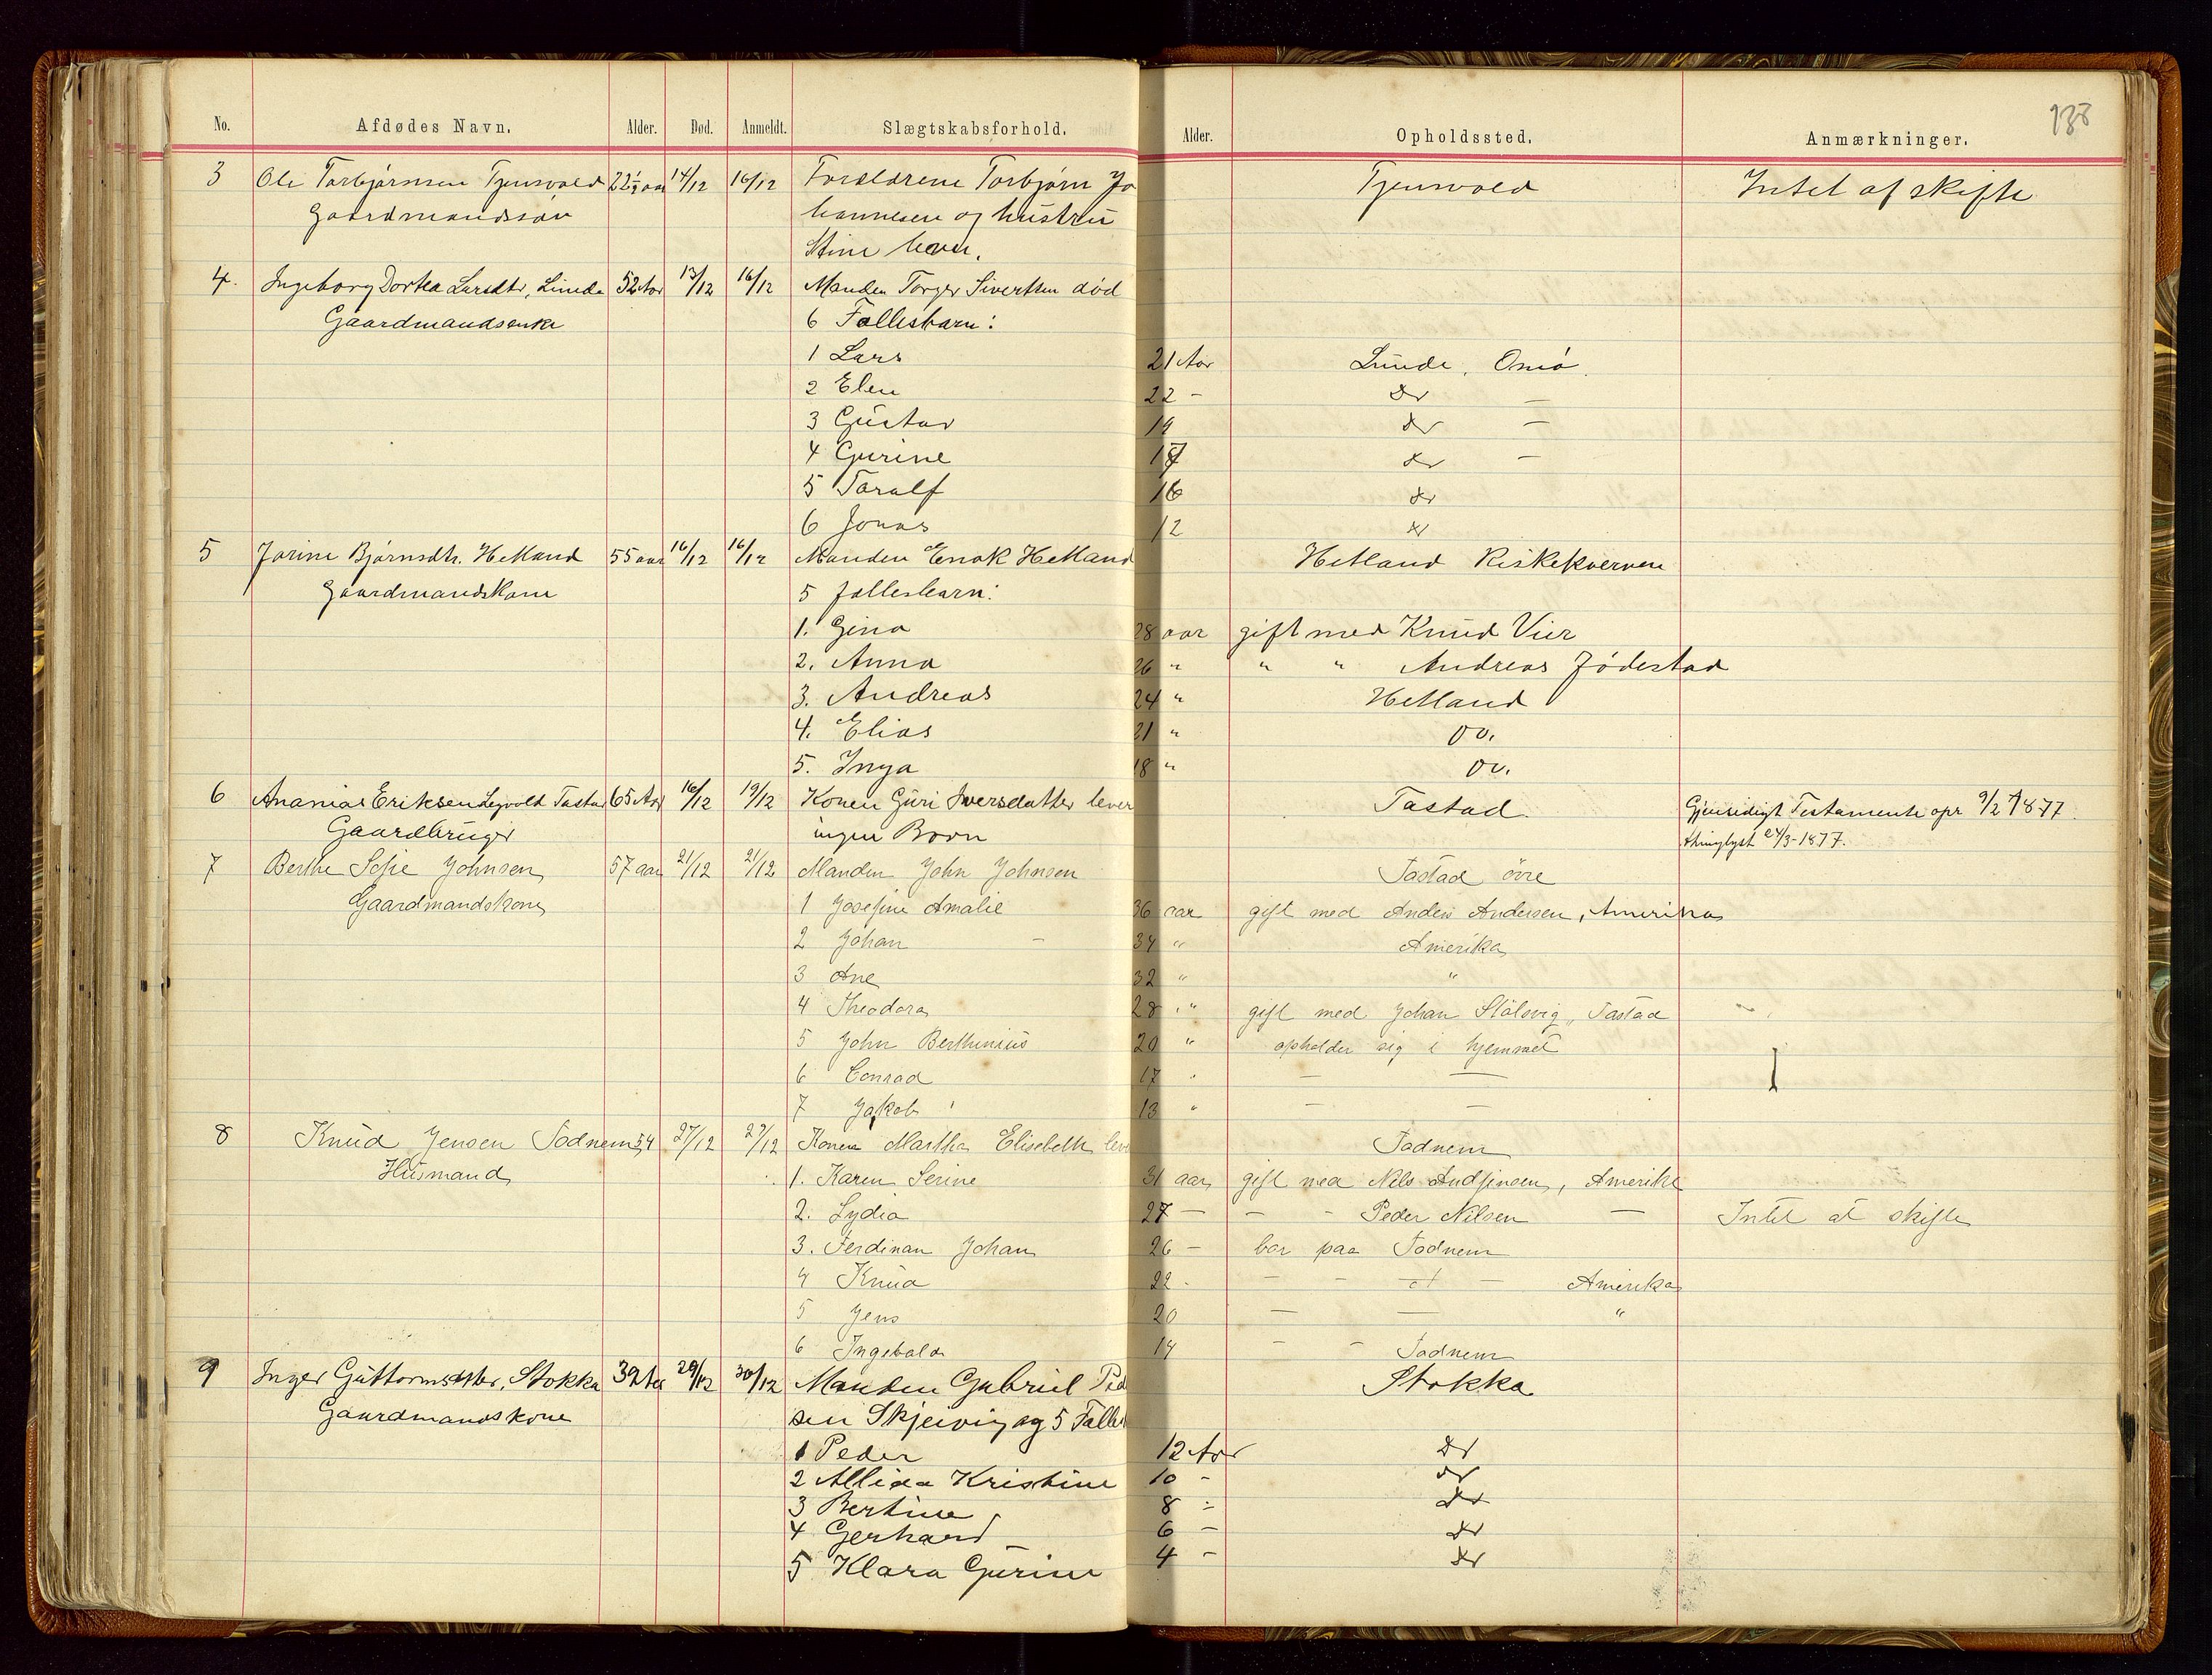 138
No. Afdødes Navn. Alder. Død. Anmeldt. Slægtskabsforhold. Alder. Opholdssted. Anmærkninger.
3 Ole Torbjørnsen Tjensvold 22½ aar 14/12 16/12 Forældrene Torbjørn Jo Tjensvold Intet at skifte
Gaardmandssøn hannesen og hustru
Stine lever.
4. Ingeborg Dortea Larsdtr, Lunde 52 Aar 13/12 16/12 Manden Torger Sivertsen død
Gaardmandsenke 6 Fællesbørn:
1 Lars 21 Aar Lunde, Omø.
2 Elen 22 - do —
3 Gustav 19 do —
4 Gurine 17 do —
5 Toralf 16 do
6 Jonas 12 do
5 Jorine Bjørnsdtr. Hetland 55 aar 16/12 16/12 Manden Enok Hetland Hetland Riskekvernen
Gaardmandskone 5 fællesbørn:
1. Gina 28 aar gift med Knud Vier
2. Anna 26 " " " Andreas Jødestad
3. Andreas 24 " Hetland
4. Elias 21 " do.
5. Inga 18 " do.
6 Ananias Eriksen Tastad 65 Aar 16/12 19/12 Konen Guri Iversdatter lever Tastad. Gjensidigt Testamente opr 9/2 1877.
Gaardbruger ingen Børn thinglyst 24/3-1877.
7 Berthe Sofie Johnsen 57 aar 21/12 21/12 Manden John Johnsen Tastad övre
Gaardmandskone 1 Josefine Amalie 36 aar gift med Anders Andersen, Amerika
2 Johan — 34 " Amerika
3 Ane 32 " "
4 Theodora 28 " gift med Johan Stölsvig, Tastad
5 John Berthinius 20 " opholder sig i hjemmet
6 Conrad 17 " — —
7 Jakob 13 " — —
8 Knud Jensen Todnem 54 27/12 27/12 Konen Martha Elisebeth lev Todnem
Husmand 1. Karen Serine 31 aar gift med Nils Andfinsen, Amerika
2. Lydia 27 — — - Peder Nilsen — Intet at skifte
3. Ferdinan Johan 26 — bor paa Todnem
4 Knud 22 - — - — Amerika
5 Jens 20 — — "
6 Ingebald 14 - - Todnem
9 Inger Guttormsdtter, Stokka 39 Aar 29/12 30/12 Manden Gabriel Ped Stokka
Gaardmandskone sen Skjeivig og 5 Fælles
1 Peder 12 Aar do
2 Kristine 10 - do
3 Bertine 8 - do
4 Gerhard 6 - do
5 Klara Gurine 4 - do